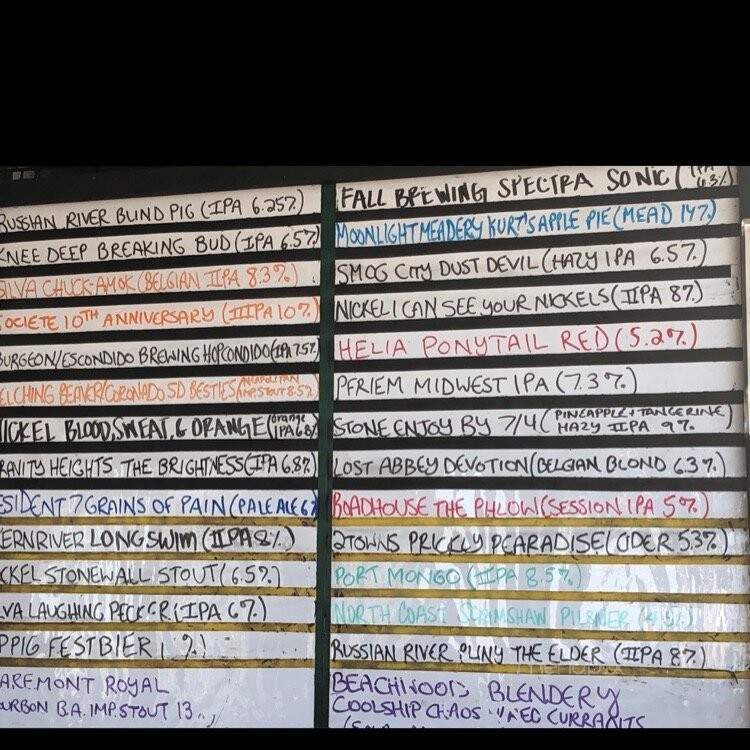 RUSSIAN RIVER BLIND PIG (IPA 6.25%)
KNEE DEEP BREAKING BUD (IPA 6.5%)
SILVA CHUCK-AMOK (BELGIAN IIPA 8.3%)
SOCIETE 10TH ANNIVERSARY (IIIPA 10%)
BURGEON/ESCONDIDO BREWING HOPCONDIDO (IPA 7.5%)
ELCHING BEAVER/CORONADO SD BESTIES (NEAPOLITAN IMP. STOUT 8.5%)
NICKEL BLOOD, SWEAT, & ORANGE (orange IPA 6.8%)
RAVITY HEIGHTS THE BRIGHTNESS (IPA 6.8%)
ESIDENT 7 GRAINS OF PAIN (PALE ALE 6%
ERN RIVER LONG SWIM (IIPA 8%)
CKEL STONEWALL STOUT (6.5%)
LVA LAUGHING PECKER (IPA 6%)
PPIG FESTBIER ( %)
AREMONT ROYAL
URBON B.A. IMP. STOUT 13
FALL BREWING SPECTRA SONIC (IPA 6.3%)
MOONLIGHT MEADERY KURT'S APPLE PIE (MEAD 14%)
SMOG CITY DUST DEVIL (HAZY IPA 6.5%)
NICKEL I CAN SEE YOUR NICKELS (IIPA 8%)
HELIA PONYTAIL RED (5.2%)
PFRIEM MIDWEST IPA (7.3%)
STONE ENJOY BY 7/4 (PINEAPPLE + TANGERINE HAZY IIPA 9%)
LOST ABBEY DEVOTION (BELGIAN BLOND 6.3%)
ROADHOUSE THE PHLOW (SESSION IPA 5%)
2TOWNS PRICKLY PEARADISE (CIDER 5.3%)
PORT MONGO (IIPA 8.5%)
NORTH COAST SCRIMSHAW PILSNER (4.5%)
RUSSIAN RIVER PLINY THE ELDER (IIPA 8%)
BEACHWOOD BLENDERY
COOLSHIP CHAOS CURRANTS